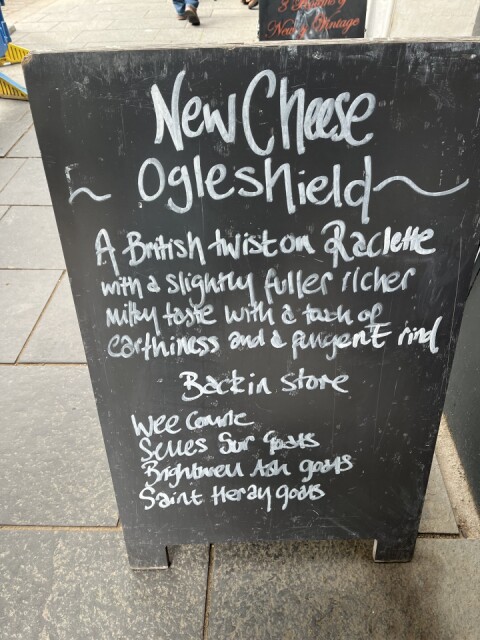 8 Bottles of
New & Vintage
New Cheese
Ogleshield
A British twist on Raclette
with a slightly fuller richer
milky taste with a touch of
earthiness and a pungent rind
Back in store
Wee Comte
Selles Sur goats
Brightwell Ash goats
Saint Heray goats